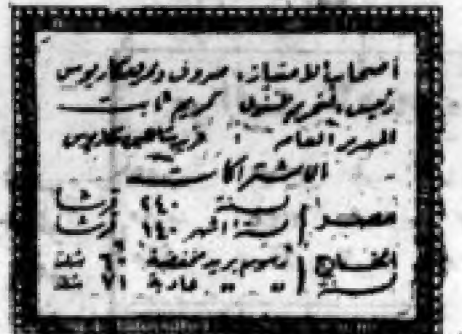 أصحاب الامتياز: صروف ونمر ومكاريوس
رئيس التحرير المسئول كريم ثابت
المدير العام : مكاريوس
الاشتراكات
مصر { لسنة ٢٤٠ قرشا
ستة أشهر ١٤٠ قرشا
الخارج { رسوم بريد مخفضة ٦٠ شلنا
لسنة { عادية ٧١ شلنا